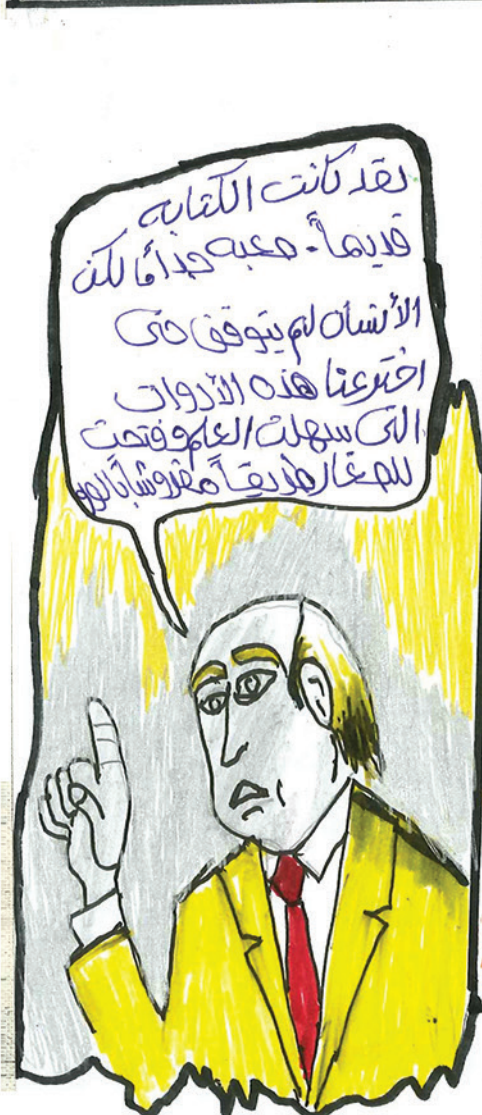 لقد كانت الكتابه
قديماً - صعبه جداً لكن
الأنسان لم يتوقف حتى
اخترعنا هذه الأدوات
التى سهلت العلم وفتحت
للصغار طريقاً مفروشاً بالنور